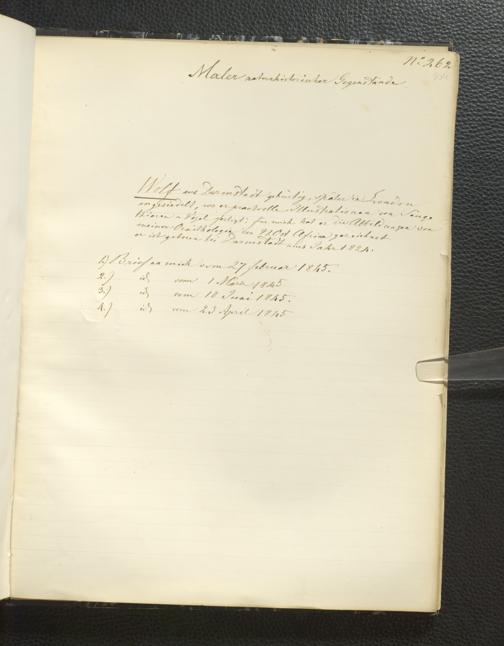 No 262
Maler naturhistorischer Gegenstände
Wolf aus Darmstadt gebürtig, später in London
angesiedelt, wo er prachtvolle Illustrationen von Säuge
thieren u Vögel; für mich hat er die Abbildungen von
meiner Ornithologie von N.Ost Afrika gezeichnet
er ist geboren bei Darmstadt im Jahr 1824.
1) Brief an mich vom 27 Februar 1845.
2.) id, vom 1 März 1845
3.) id, vom 10 Juni 1845.
4.) id, vom 23 April 1845